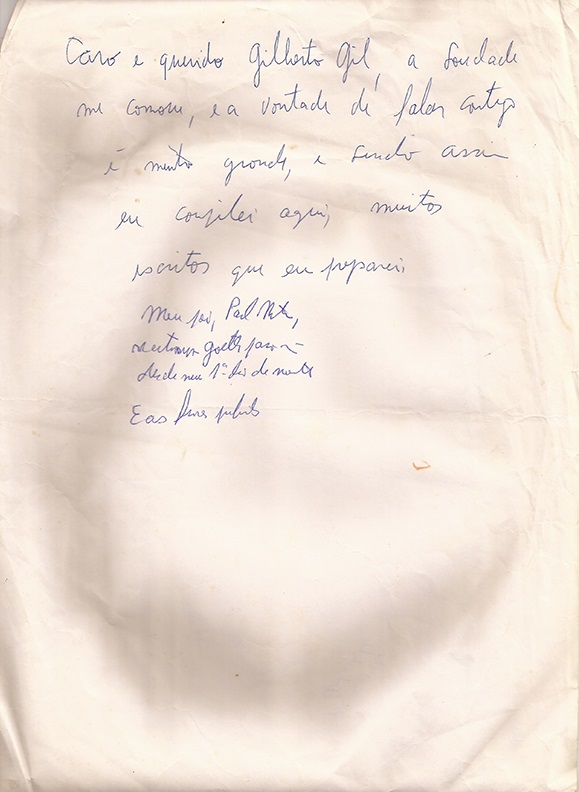 Caro e querido Gilberto Gil, a saudade
me comove, e a vontade de falar contigo
é muito grande, e sendo assim
eu compilei aqui, muitos
escritos que eu preparei.
Meu pai,
desde meu 1º dia de
E as